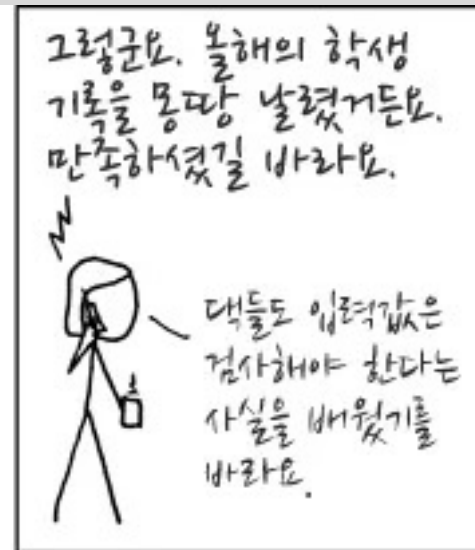 그렇군요. 올해의 학생
기록을 몽땅 날렸거든요.
만족하셨길 바라요.
댁들도 입력값은
검사해야 한다는
사실을 배웠기를
바라요.